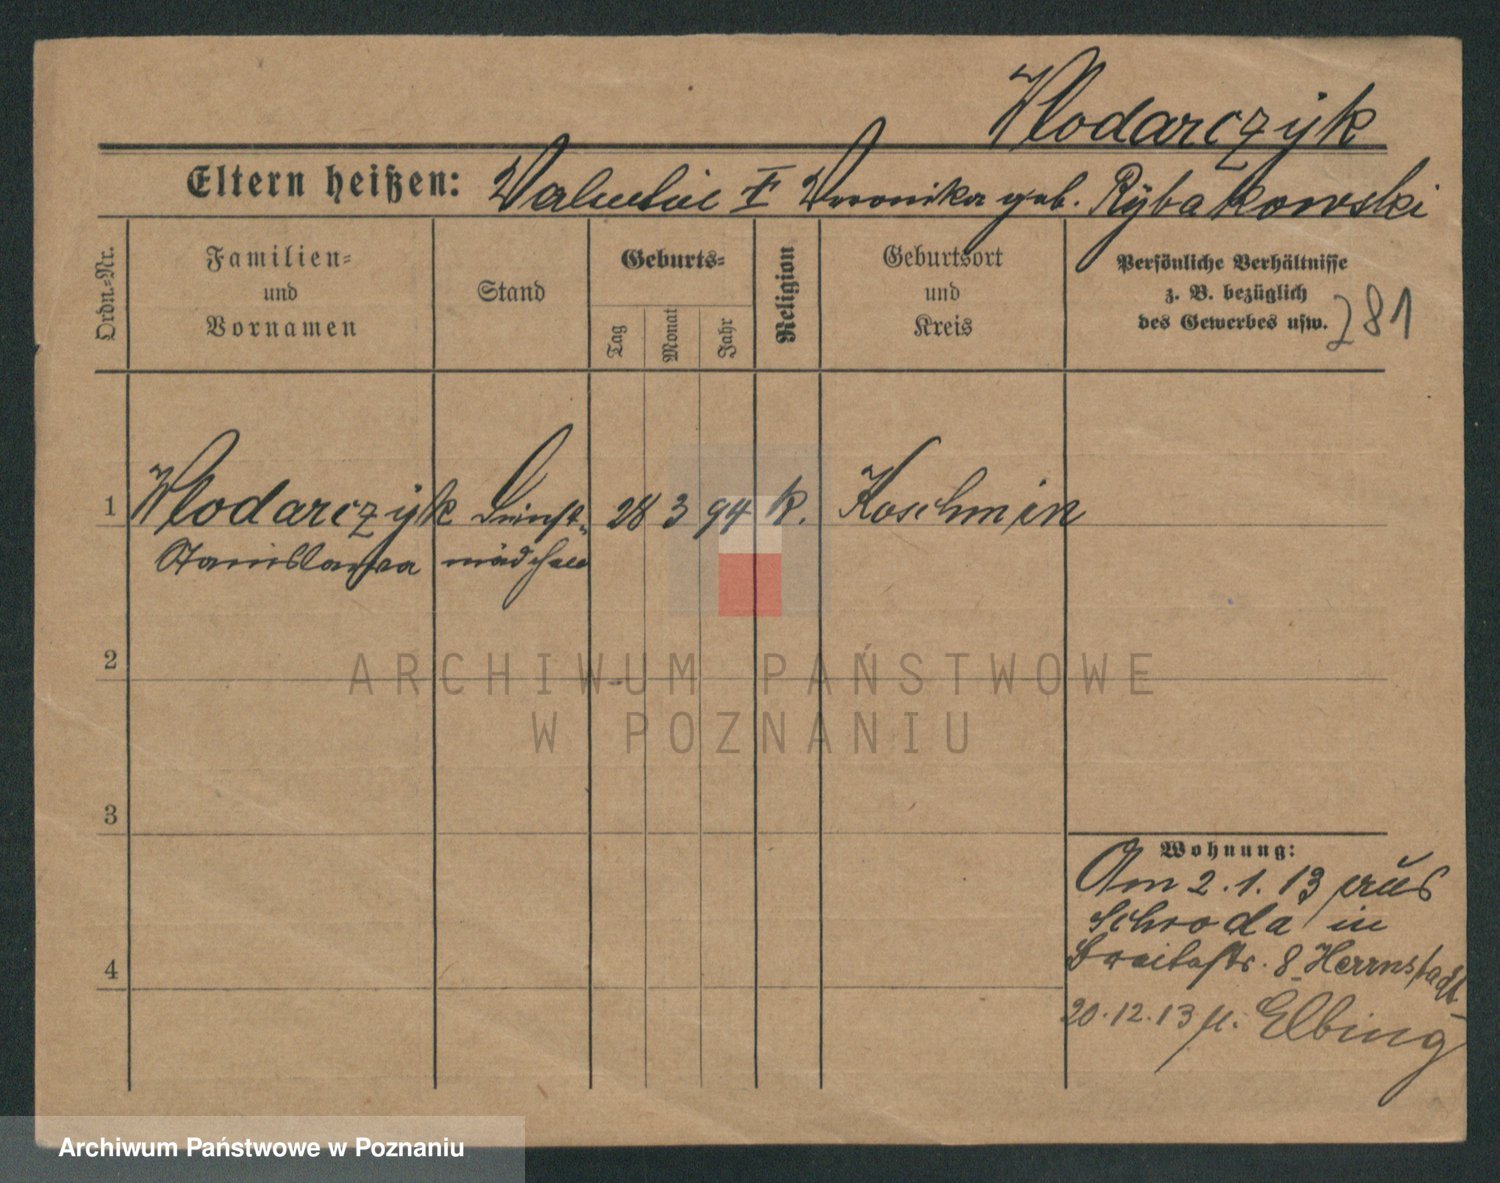 Wlodarczÿk
Eltern heißen: Valentin † Veronika geb. Rÿbakowski
Ordn.-Nr.
Familien-
und
Vornamen
Stand
Geburts-
Tag
Monat
Jahr
Religion
Geburtsort
und
Kreis
Persönliche Verhältnisse
z. B. bezüglich
des Gewerbes usw.
281
1 Wlodarczÿk Dienst- 28 3 94 k. Koschmin
Stanislawa mädchen
2
ARCHIWUM PAŃSTWOWE
W POZNANIU
3
4
Wohnung:
Am 2.1.13 aus
Schroda in
Breitestr. 8 Herrnstadt
20.12.13 n. Elbing
Archiwum Państwowe w Poznaniu